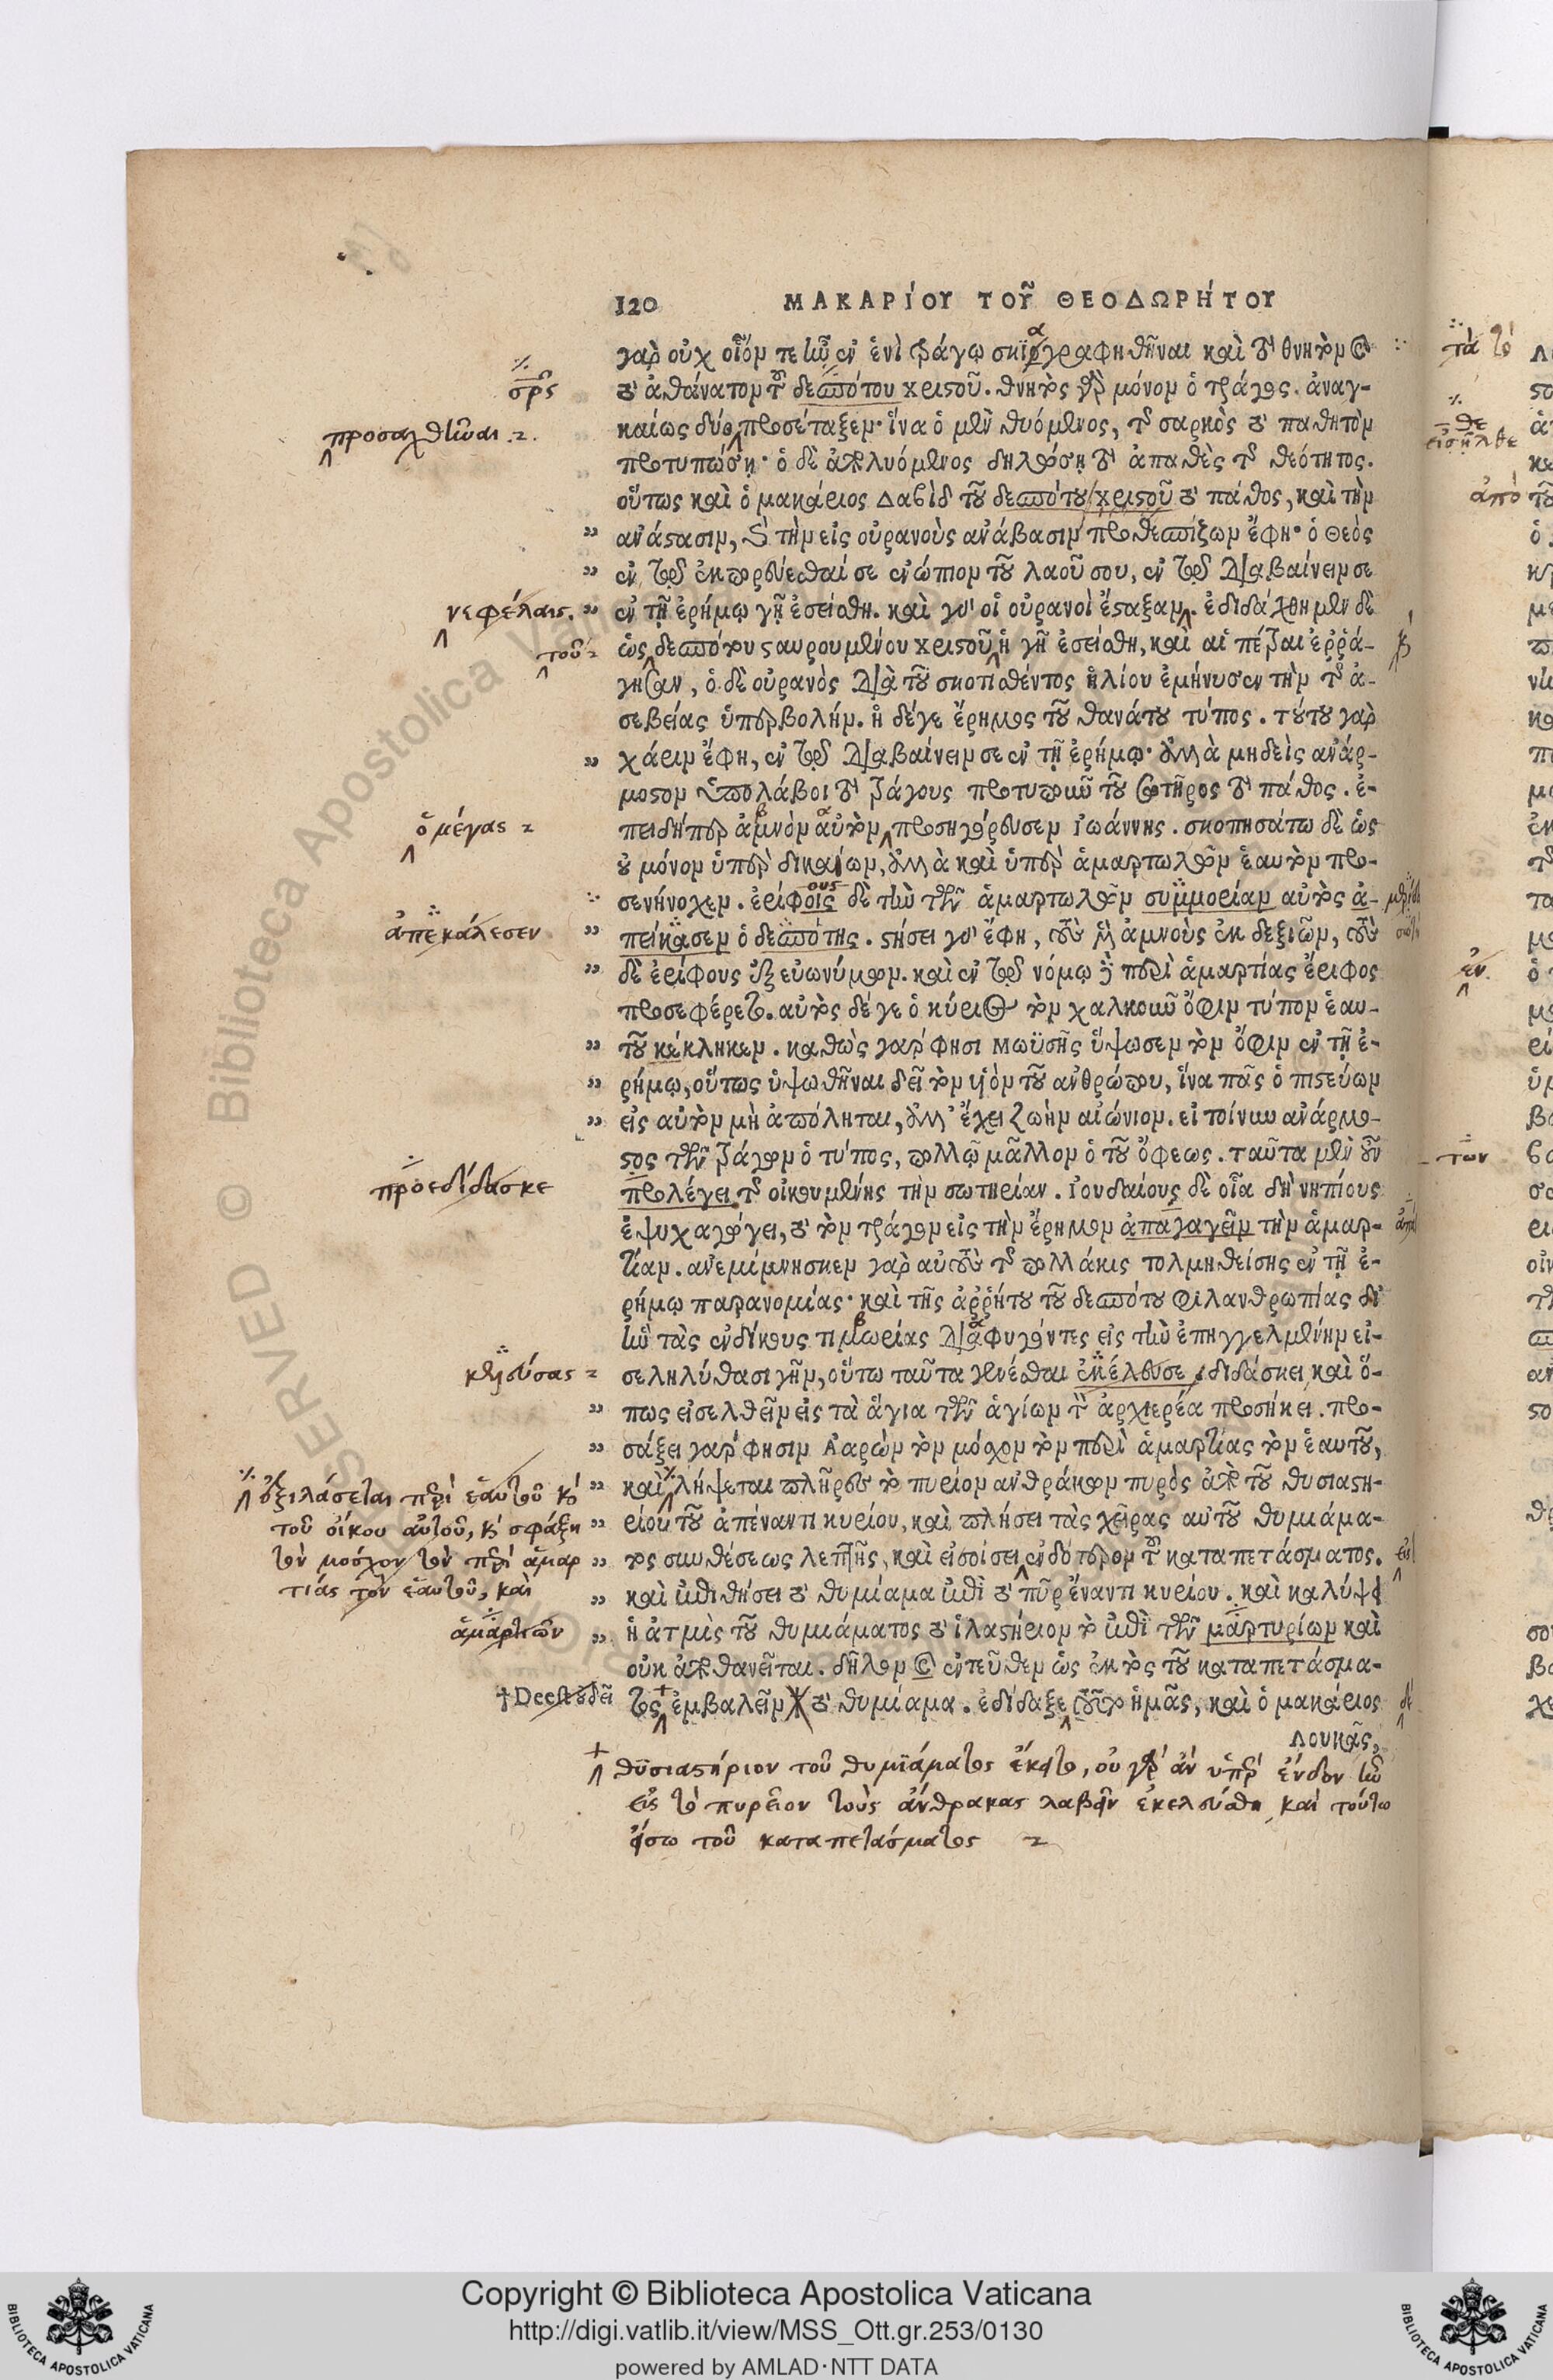 120 ΜΑΚΑΡΊΟΥ ΤΟΥ͂ ΘΕΟΔΩΡΉΤΟΥ
γαρ οὐχ οἷόν τε ἦν ἐν ἑνὶ τράγῳ σκιογραφηθῆναι καὶ τὸ θνητὸν καὶ
τὸ ἀθάνατον τοῦ δεσπότου χριστοῦ. θνητὸς γὰρ μόνον ὁ τράγος. ἀναγ-
καίως δύο προσέταξεν· ἵνα ὁ μὲν θυόμενος, τῆς σαρκὸς τὸ παθητὸν
προτυπώσῃ· ὁ δὲ ἀπολυόμενος δηλώσῃ τὸ ἀπαθὲς τῆς θεότητος.
οὕτως καὶ ὁ μακάριος Δαβὶδ τοῦ δεσπότου χριστοῦ τὸ πάθος, καὶ τὴν
ἀνάστασιν, καὶ τὴν εἰς οὐρανοὺς ἀνάβασιν προθεσπίζων ἔφη· ὁ Θεὸς
ἐν τῷ ἐκπορεύεσθαί σε ἐνώπιον τοῦ λαοῦ σου, ἐν τῷ διαβαίνειν σε
ἐν τῇ ἐρήμῳ γῆ ἐσείσθη. καὶ γὰρ οἱ οὐρανοὶ ἔσταξαν. ἐδιδάχθημεν δὲ
ὡς δεσπότου σταυρουμένου χριστοῦ ἡ γῆ ἐσείσθη, καὶ αἱ πέτραι ἐρρά-
γησαν, ὁ δὲ οὐρανὸς διὰ τοῦ σκοτισθέντος ἡλίου ἐμήνυσεν τὴν τῆς ἀ-
σεβείας ὑπερβολήν. ἡ δέ γε ἔρημος τοῦ θανάτου τύπος. τούτου γὰρ
χάριν ἔφη, ἐν τῷ διαβαίνειν σε ἐν τῇ ἐρήμῳ· ἀλλὰ μηδεὶς ἀνάρ-
μοστον ὑπολάβοι τὸ τράγους προτυποῦν τοῦ σωτῆρος τὸ πάθος. ἐ-
πειδήπερ ἀμνὸν αὐτὸν προσηγόρευσεν Ἰωάννης. σκοπησάτω δὲ ὡς
οὐ μόνον ὑπὲρ δικαίων, ἀλλὰ καὶ ὑπὲρ ἁμαρτωλῶν ἑαυτὸν προ-
σενήνοχεν. ἐρίφοις δὲ τὴν τῶν ἁμαρτωλῶν συμμορίαν αὐτὸς ἀ-
πείκασεν ὁ δεσπότης. στήσει γὰρ ἔφη, τοὺς μὲν ἀμνοὺς ἐκ δεξιῶν, τοὺς
δὲ ἐρίφους ἐξ εὐωνύμων. καὶ ἐν τῷ νόμῳ δὲ περὶ ἁμαρτίας ἔριφος
προσεφέρετο. αὐτὸς δέ γε ὁ κύριος τὸν χαλκοῦν ὄφιν τύπον ἑαυ-
τοῦ κέκληκεν. καθὼς γάρ φησι Μωϋσῆς ὕψωσεν τὸν ὄφιν ἐν τῇ ἐ-
ρήμῳ, οὕτως ὑψωθῆναι δεῖ τὸν υἱὸν τοῦ ἀνθρώπου, ἵνα πᾶς ὁ πιστεύων
εἰς αὐτὸν μὴ ἀπόληται, ἀλλ' ἔχει ζωὴν αἰώνιον. εἰ τοίνυν ἀνάρμο-
στος τῶν τράγων ὁ τύπος, πολλῷ μᾶλλον ὁ τοῦ ὄφεως. ταῦτα μὲν οὖν
προλέγει τῆς οἰκουμένης τὴν σωτηρίαν. Ἰουδαίους δὲ οἷα δὴ νηπίους
ἐψυχαγώγει, τὸ τὸν τράγον εἰς τὴν ἔρημον ἀπαγαγεῖν τὴν ἁμαρ-
τίαν. ἀνεμίμνησκεν γὰρ αὐτοὺς τῆς πολλάκις τολμηθείσης ἐν τῇ ἐ-
ρήμῳ παρανομίας· καὶ τῆς ἀῤῥήτου τοῦ δεσπότου φιλανθρωπίας δι'
ἣν τὰς ἐνδίκους τιμωρίας διαφυγόντες εἰς τὴν ἐπηγγελμένην εἰ-
σεληλύθασι γῆν, οὕτω ταῦτα γενέσθαι ἐκέλευσε, διδάσκει καὶ ὅ-
πως εἰσελθεῖν εἰς τὰ ἅγια τῶν ἁγίων τὸν ἀρχιερέα προσήκει. προ-
σάξει γάρ φησιν Ἀαρὼν τὸν μόσχον τὸν περὶ ἁμαρτίας τὸν ἑαυτοῦ,
καὶ λήψεται πλῆρες τὸ πυρίον ἀνθράκων πυρὸς ἀπὸ τοῦ θυσιαστη-
ρίου τοῦ ἀπέναντι κυρίου, καὶ πλήσει τὰς χεῖρας αὐτοῦ θυμιάμα-
τος συνθέσεως λεπτῆς, καὶ εἰσοίσει ἐνδότερον τοῦ καταπετάσματος.
καὶ ἐπιθήσει τὸ θυμίαμα ἐπὶ τὸ πῦρ ἔναντι κυρίου. καὶ καλύψει
ἡ ἀτμὶς τοῦ θυμιάματος τὸ ἱλαστήριον τὸ ἐπὶ τῶν μαρτυρίων καὶ
οὐκ ἀποθανεῖται. δῆλον καὶ ἐντεῦθεν ὡς ἐκτὸς τοῦ καταπετάσμα-
τος ἐμβαλεῖν τὸ θυμίαμα. ἐδίδαξε τοῦτο ἡμᾶς, καὶ ὁ μακάριος
Λουκᾶς,
σπρς
προσαχθῆναι
νεφέλαις.
τοῦ
ὁ μέγας
ἀπεκάλεσεν
προεδίδασκε
κελεύσας
ἐξιλάσεται περὶ ἑαυτοῦ καὶ
τοῦ οἴκου αὐτοῦ, καὶ σφάξῃ
τὸν μόσχον τὸν περὶ ἁμαρ
τίας τὸν ἑαυτοῦ, καὶ
ἁμαρτιῶν
† Deest δεῖ
θυσιαστήριον τοῦ θυμιάματος ἔκειτο, οὐ γὰρ ἂν ὑπὲρ ἔνδον ὢν
εἰς τὸ πυρεῖον τοὺς ἄνθρακας λαβεῖν ἐκελεύσθη καὶ τούτω
εἴσω τοῦ καταπετάσματος
τὰ τὸ
εἰσῆλθε
ἀπὸ
ἐν
των
Copyright © Biblioteca Apostolica Vaticana
http://digi.vatlib.it/view/MSS_Ott.gr.253/0130
powered by AMLAD·NTT DATA